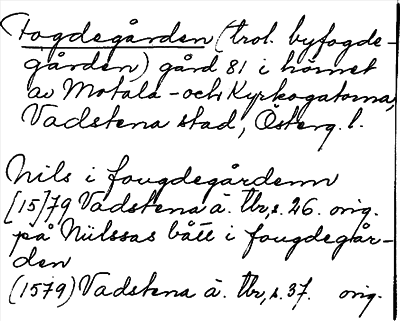 Fogdegården (trol. byfogde-
gården) gård 81 i hörnet
av Motala- och Kyrkogatorna,
Vadstena stad, Österg. l.
Nils i fougdegårdenn
[15]79 Vadstena ä. Tbr, s. 26. orig.
på Niilssas bått i fougdegår-
den
(1579) Vadstena ä. Tbr, s. 37. orig.